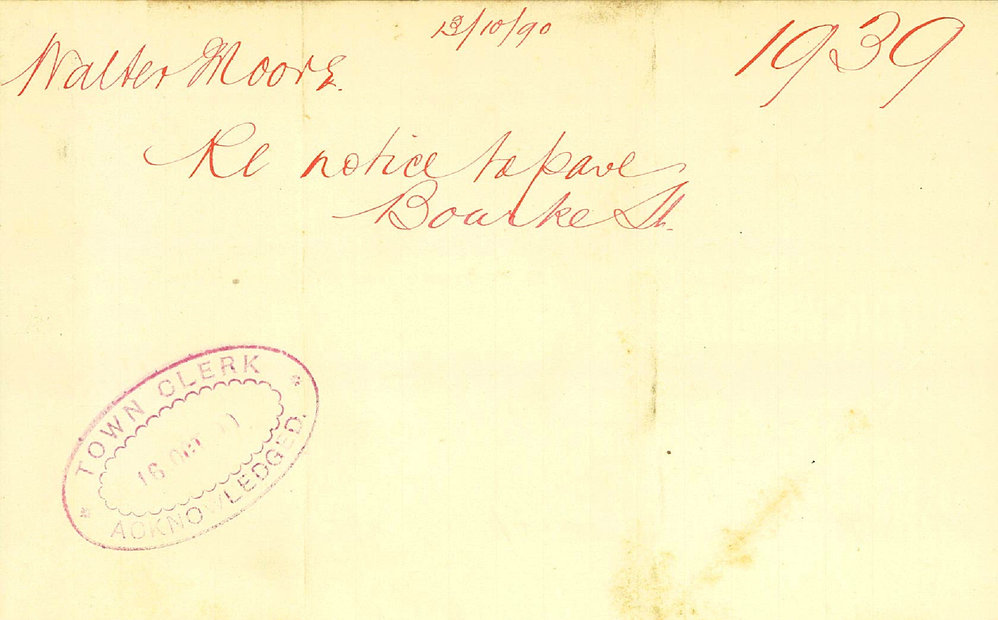 13/10/90
Walter Moore.
1939
Re notice to pave
Bourke St.
TOWN CLERK
16 OCT
ACKNOWLEDGED.